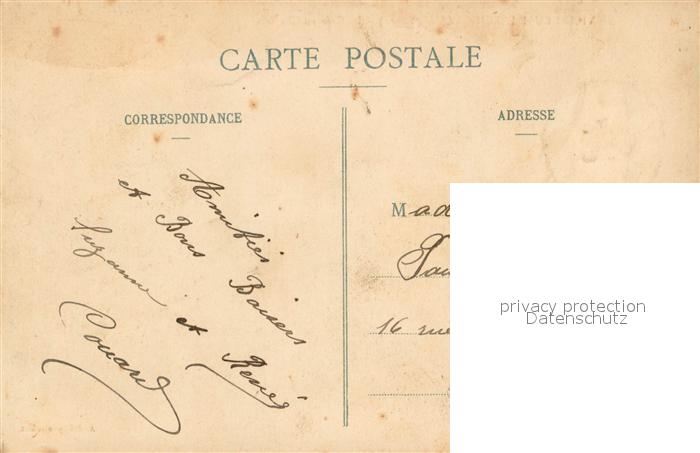 CARTE POSTALE
CORRESPONDANCE
ADRESSE
Amitiés
et Bons Baisers
Suzanne et René
Couard
Mad
16 rue
privacy protection
Datenschutz